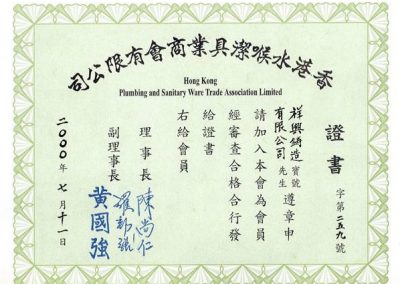 香港水喉潔具業商會有限公司
Hong Kong
Plumbing and Sanitary Ware Trade Association Limited
證書 字第二五九號
祥興鑄造 寶號
有限公司 先生 遵章申
請加入本會為會員
經審查合格合行發
給證書
右給會員
理事長 陳尚仁
副理事長
黃國強
二000年七月十一日